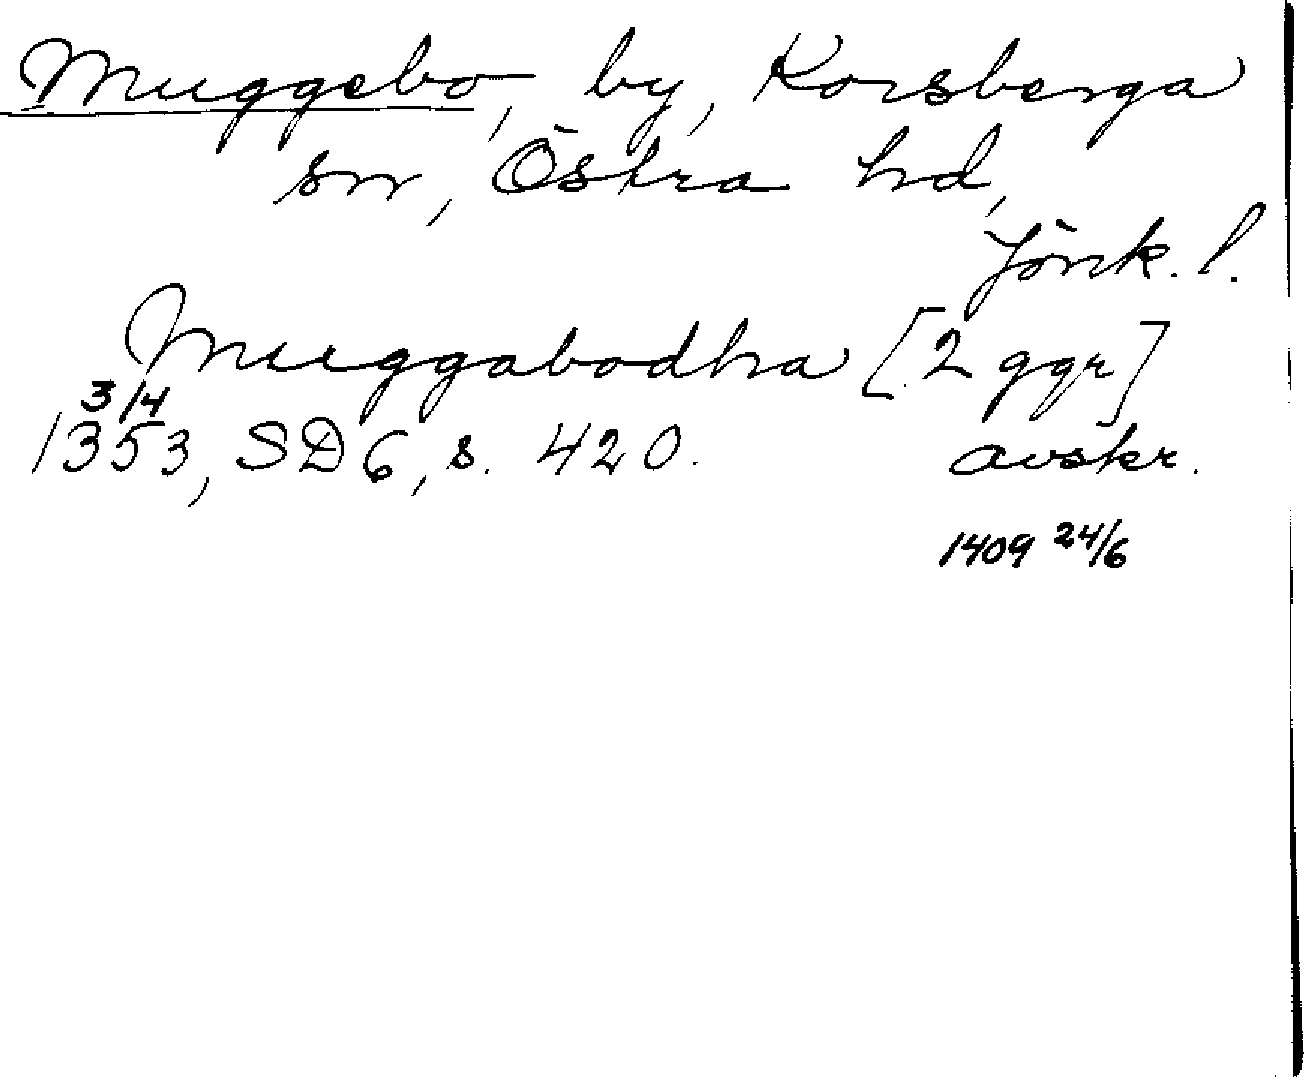 Muggebo, by, Korsberga
sn, Östra hd,
Jönk. l.
Muggabodha [2 ggr]
3/4
1353, SD 6, s. 420. avskr.
1409 24/6